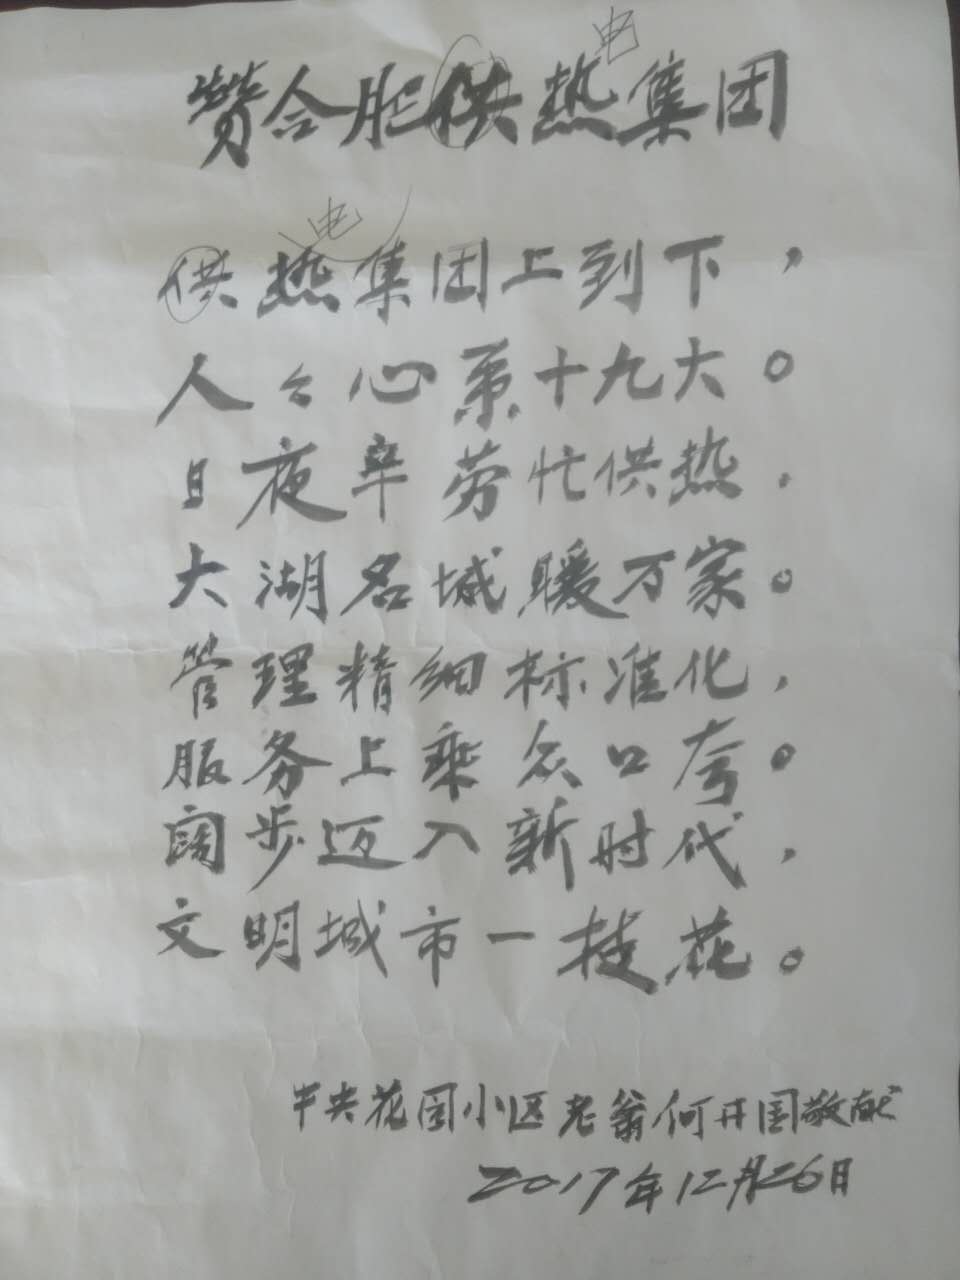 电
赞合肥供热集团
电
供热集团上到下，
人々心系十九大。
日夜辛劳忙供热，
大湖名城暖万家。
管理精细标准化，
服务上乘众口夸。
阔步迈入新时代，
文明城市一枝花。
中央花园小区老翁何开国敬献
2017年12月26日